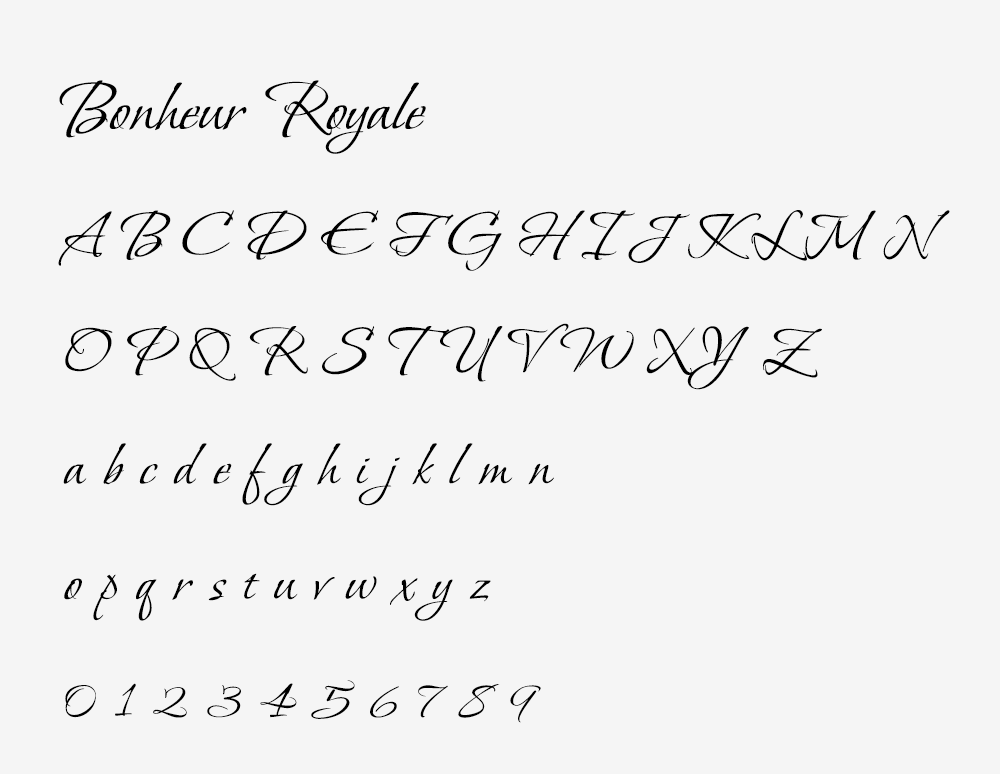 Bonheur Royale
A B C D E F G H I J K L M N
O P Q R S T U V W X Y Z
a b c d e f g h i j k l m n
o p q r s t u v w x y z
0 1 2 3 4 5 6 7 8 9